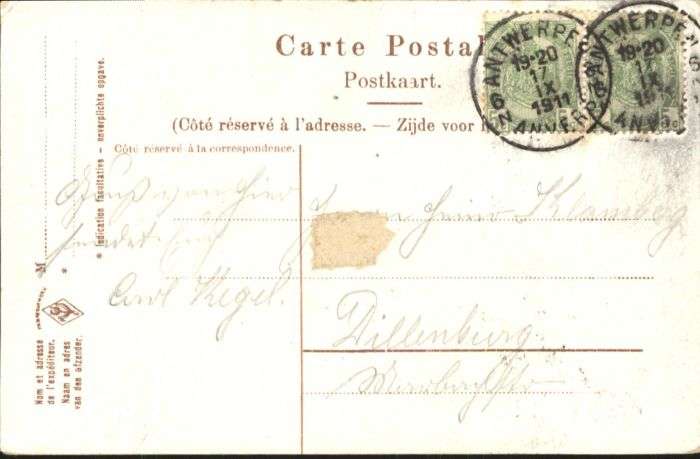 Carte Postal
Postkaart.
(Côté réservé à l'adresse. — Zijde voor
Côté réservé à la correspondence.
ANTWERPEN
19-20
17
IX
1911
ANVERS
ANTWERPEN
19-20
17
IX
ANV
Gruß von hier
sendet
Carl Kegel.
Herrn Heinr
Dillenburg
* Indication facultative - onverplichte opgave.
M
*
Nom et adresse
de l'expéditeur.
Naam en adres
van den afzender.